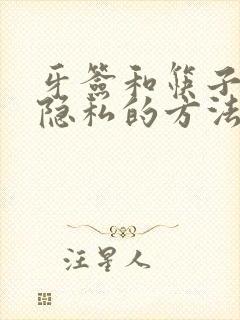 牙签和筷子
隐私的方法
汪星人